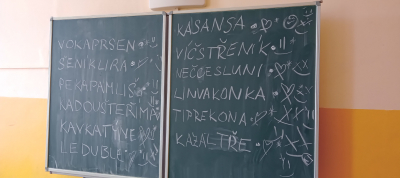 VOKAPRSEN
SENIKLIRA
PEKAPAMLIS
KADOUSTEŘIMA
KAVKATYNE
LEDUBLE
KASANSA
VÍČSTŘEMIK
NEČČESLUNI
LINVAKONKA
TIPREKONA
KAZALTŘE